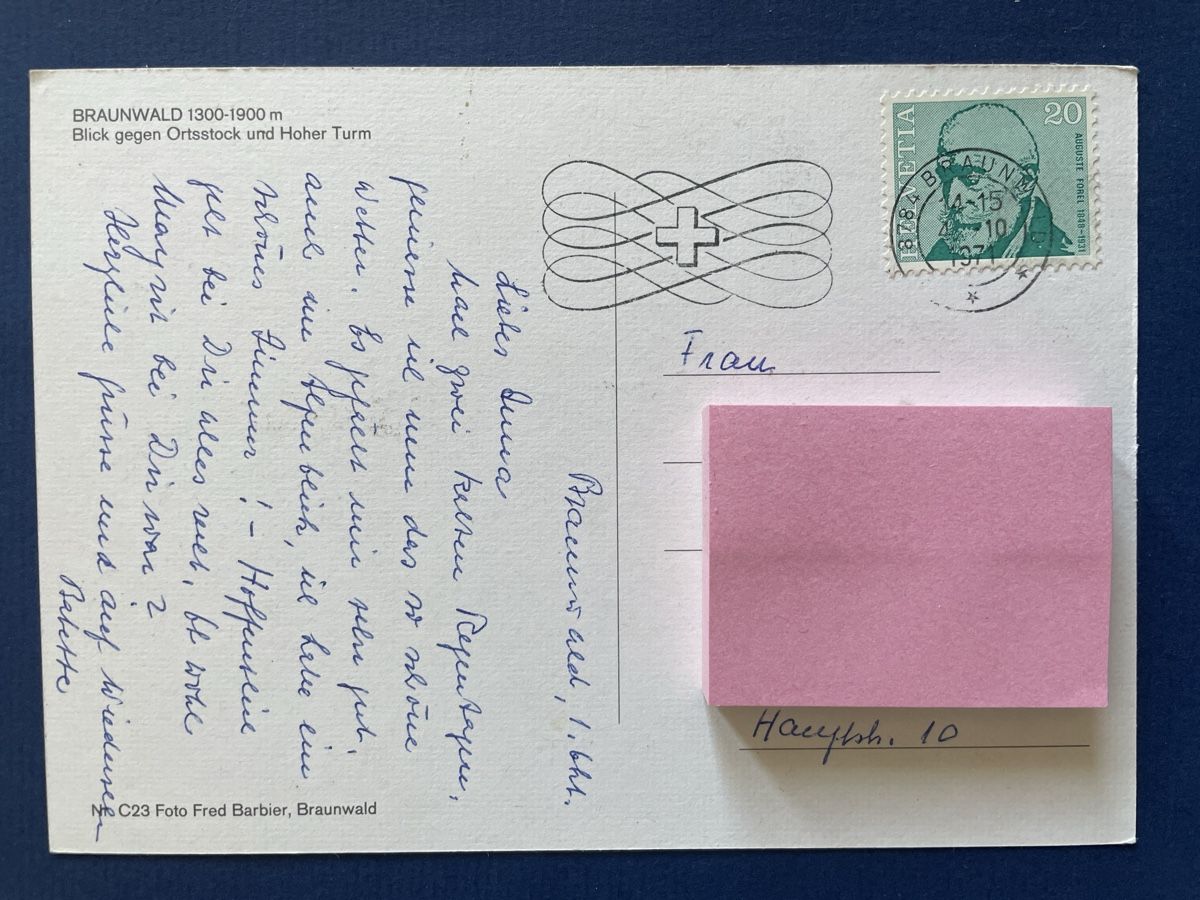 BRAUNWALD 1300-1900 m
Blick gegen Ortsstock und Hoher Turm
HELVETIA
20
AUGUSTE FOREL 1848-1931
8784 BRAUNWALD
4.10
1971
Braunwald, 1. Okt.
Liebes Anna
Nach zwei kalten Regentagen,
geniesse ich nun das so schöne
Wetter. Es gefällt mir sehr gut,
auch im Alpenblick, ich habe ein
schönes Zimmer! – Hoffentlich
geht bei Dir alles recht, ob wohl
Margrit bei Dir war?
Herzliche Grüsse und auf Wiedersehen
Babette
Frau
Hauptstr. 10
Nr. C23 Foto Fred Barbier, Braunwald